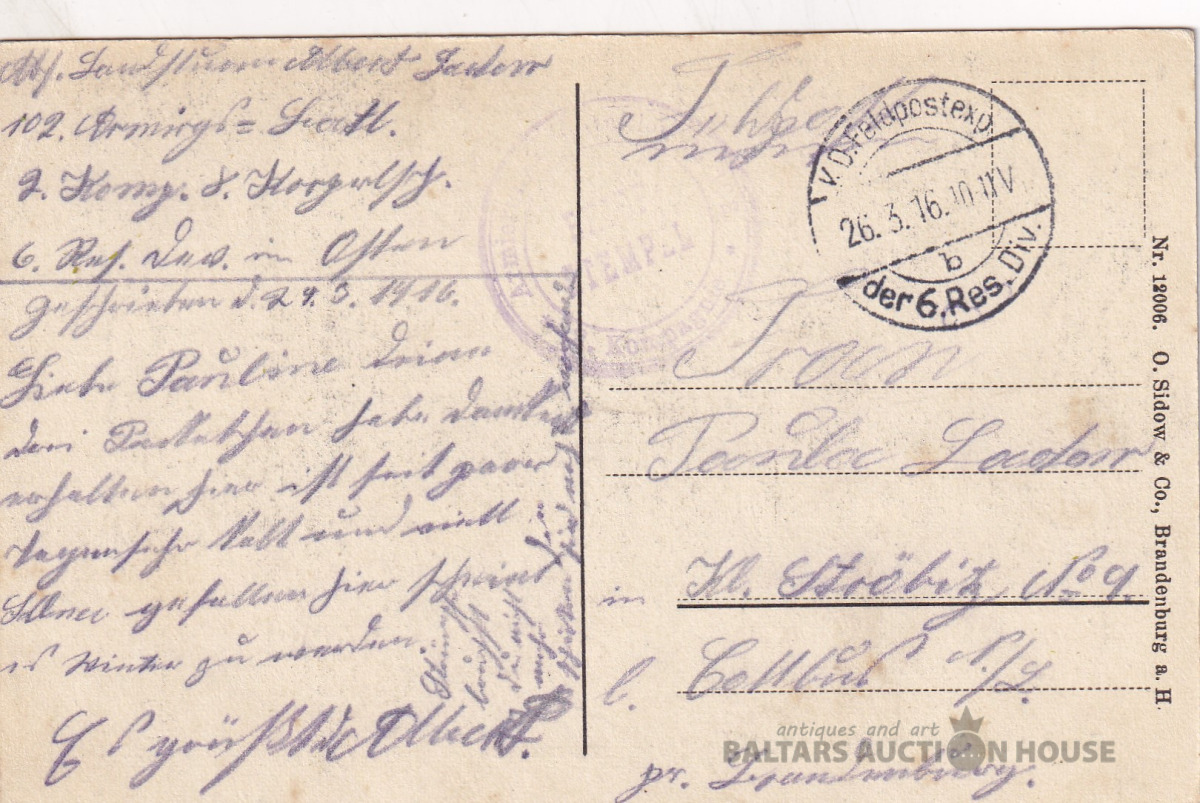 Abs. Landsturm Albert Ladow
102. Armirgs= Batl.
2. Komp. 8. Korprlsch.
6. Res. Dev. in Osten
geschrieben d. 24. 3. 1916.
Liebe Pauline deine
drei Packetchen habe dankend
erhalten hier ist seit paar
tagen sehr kalt und viell
Schnee gefallen hier scheint
es Winter zu werden
Es grüßt dich Albert
brauchst
Du nicht
mehr
schicken
STEMPEL
Feldpost
V.D. Feldpostexp.
26. 3. 16. 10-11 V
b
der 6. Res. Div.
Frau
Paula Ladow
in Kl. Ströbitz No 9.
b. Cottbus N./L.
pr. Brandenburg.
Nr. 12006. O. Sidow & Co., Brandenburg a. H.
antiques and art
BALTARS AUCTION HOUSE